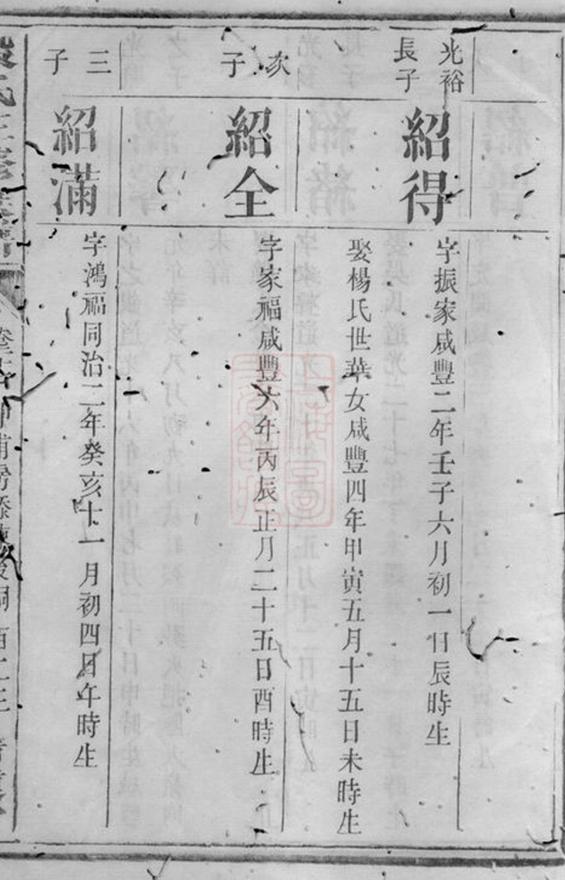 光裕長子
紹得
字振家咸豐二年壬子六月初一日辰時生
娶楊氏世華女咸豐四年甲寅五月十五日未時生
次子
紹全
字家福咸豐六年丙辰正月二十五日酉時生
三子
紹滿
字鴻福同治二年癸亥十一月初四日午時生